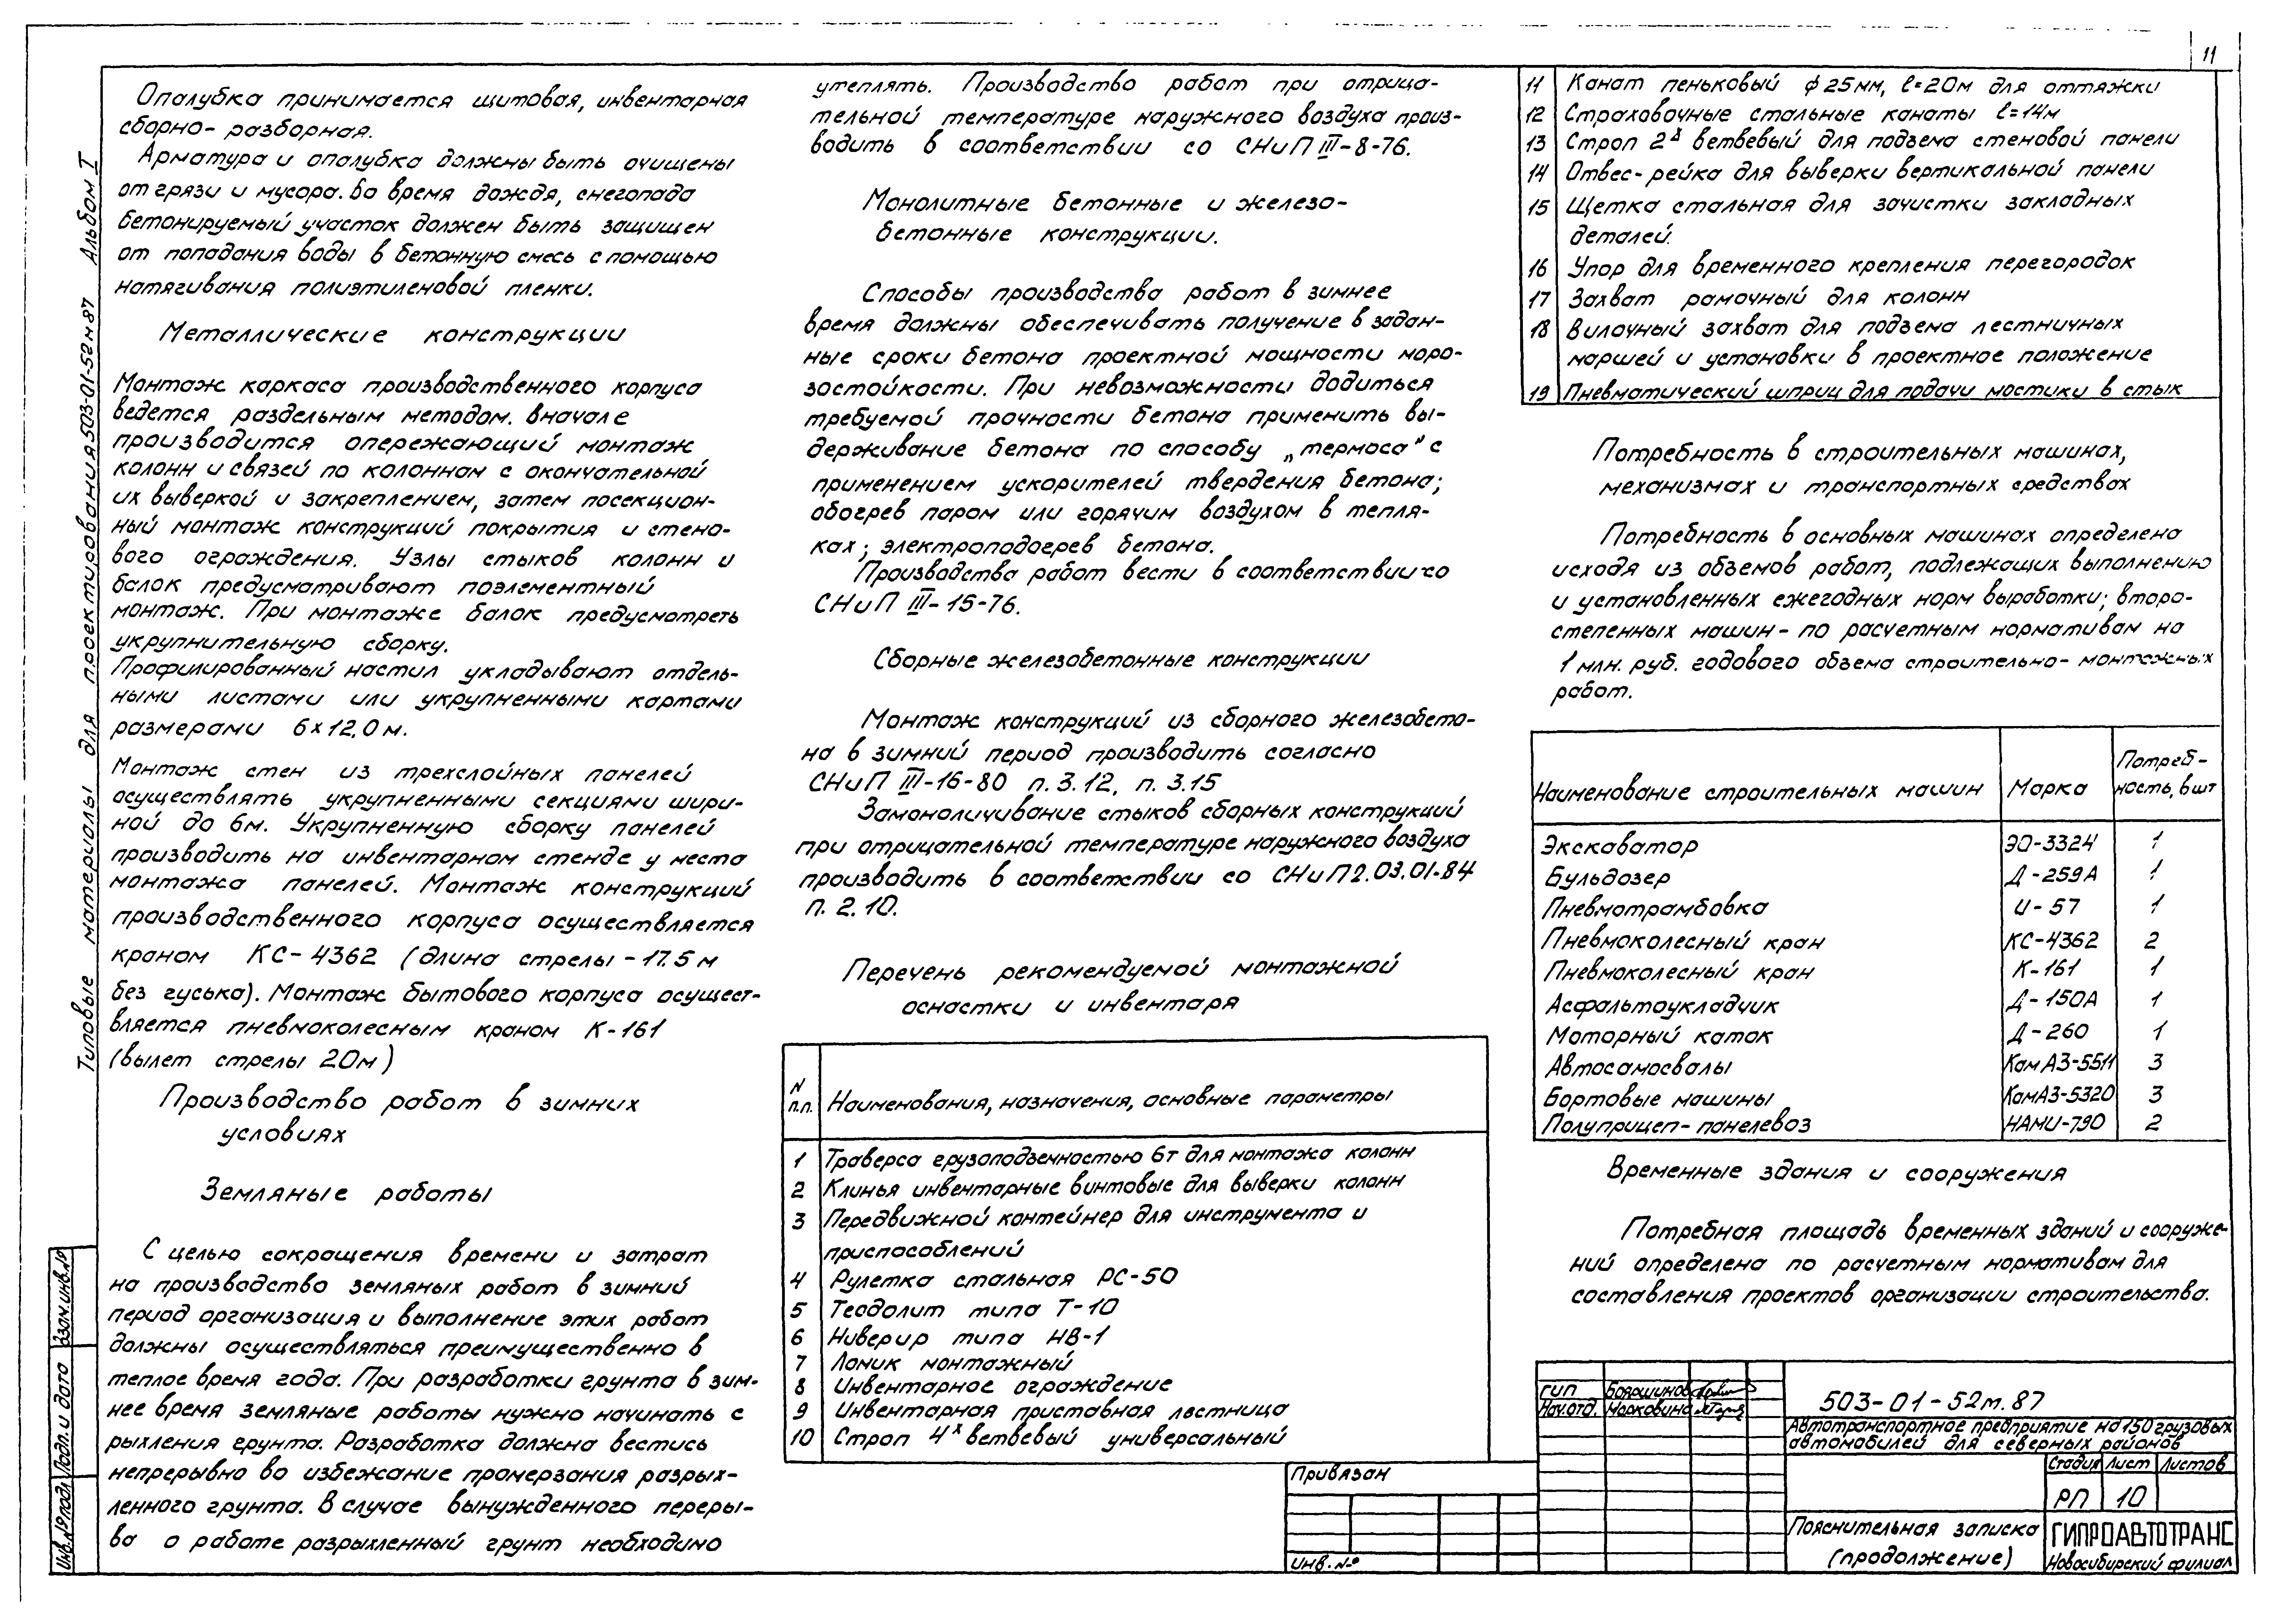 11
Типовые материалы для проектирования 503-01-52м87 Альбом I
Опалубка принимается щитовая, инвентарная
сборно-разборная.
Арматура и опалубка должны быть очищены
от грязи и мусора. Во время дождя, снегопада
бетонируемый участок должен быть защищен
от попадания воды в бетонную смесь с помощью
натягивания полиэтиленовой пленки.
Металлические конструкции
Монтаж каркаса производственного корпуса
ведется раздельным методом. Вначале
производится опережающий монтаж
колонн и связей по колоннам с окончательной
их выверкой и закреплением, затем посекцион-
ный монтаж конструкций покрытия и стено-
вого ограждения. Узлы стыков колонн и
балок предусматривают поэлементный
монтаж. При монтаже балок предусмотреть
укрупнительную сборку.
Профилированный настил укладывают отдель-
ными листами или укрупненными картами
размерами 6х12,0м.
Монтаж стен из трехслойных панелей
осуществлять укрупненными секциями шири-
ной до 6м. Укрупненную сборку панелей
производить на инвентарном стенде у места
монтажа панелей. Монтаж конструкций
производственного корпуса осуществляется
краном КС-4362 (длина стрелы - 17.5м
без гуська). Монтаж бытового корпуса осущест-
вляется пневмоколесным краном К-161
(вылет стрелы 20м)
Производство работ в зимних
условиях
Земляные работы
С целью сокращения времени и затрат
на производство земляных работ в зимний
период организация и выполнение этих работ
должны осуществляться преимущественно в
теплое время года. При разработки грунта в зим-
нее время земляные работы нужно начинать с
рыхления грунта. Разработка должна вестись
непрерывно во избежание промерзания разрых-
ленного грунта. В случае вынужденного переры-
ва о работе разрыхленный грунт необходимо
утеплять. Производство работ при отрица-
тельной температуре наружного воздуха произ-
водить в соответствии со СНиП III-8-76.
Монолитные бетонные и железо-
бетонные конструкции.
Способы производства работ в зимнее
время должны обеспечивать получение в задан-
ные сроки бетона проектной мощности моро-
зостойкости. При невозможности додиться
требуемой прочности бетона применить вы-
держивание бетона по способу „термоса" с
применением ускорителей твердения бетона;
обогрев паром или горячим воздухом в тепля-
ках; электроподогрев бетона.
Производства работ вести в соответствии со
СНиП III-15-76.
Сборные железобетонные конструкции
Монтаж конструкций из сборного железобето-
на в зимний период производить согласно
СНиП III-16-80 п.3.12, п. 3.15
Замоноличивание стыков сборных конструкций
при отрицательной температуре наружного воздуха
производить в соответствии со СНиП 2.03.01-84
п. 2.10.
Перечень рекомендуемой монтажной
оснастки и инвентаря
N п.п. Наименования, назначения, основные параметры
1 Траверса грузоподъемностью 6т для монтажа колонн
2 Клинья инвентарные винтовые для выверки колонн
3 Передвижной контейнер для инструмента и
приспособлений
4 Рулетка стальная РС-50
5 Теодолит типа Т-10
6 Ниверир типа НВ-1
7 Ломик монтажный
8 Инвентарное ограждение
9 Инвентарная приставная лестница
10 Строп 4х ветвевый универсальный
11 Канат пеньковый ϕ 25мм, ℓ=20м для оттяжки
12 Страховочные стальные канаты ℓ=14м
13 Строп 2х ветвевый для подъема стеновой панели
14 Отвес-рейка для выверки вертикальной панели
15 Щетка стальная для зачистки закладных
деталей.
16 Упор для временного крепления перегородок
17 Захват рамочный для колонн
18 Вилочный захват для подъема лестничных
маршей и установки в проектное положение
19 Пневматический шприц для подачи мастики в стык
Потребность в строительных машинах,
механизмах и транспортных средствах
Потребность в основных машинах определена
исходя из объемов работ, подлежащих выполнению
и установленных ежегодных норм выработки; второ-
степенных машин - по расчетным нормативам на
1 млн. руб. годового объема строительно-монтажных
работ.
Наименование строительных машин Марка Потреб-
ность, в шт
Экскаватор ЭО-3324 1
Бульдозер Д-259А 1
Пневмотрамбовка И-57 1
Пневмоколесный кран КС-4362 2
Пневмоколесный кран К-161 1
Асфальтоукладчик Д-150А 1
Моторный каток Д-260 1
Автосамосвалы КамАЗ-5511 3
Бортовые машины КамАЗ-5320 3
Полуприцеп-панелевоз НАМИ-790 2
Временные здания и сооружения
Потребная площадь временных зданий и сооруже-
ний определена по расчетным нормативам для
составления проектов организации строительства.
Взам.инв.№
Подп. и дата
Инв.№ подл
Привязан
Инв.№
ГИП Бояршинов
Нач.отд. Марковина
503-01-52м.87
Автотранспортное предприятие на 150 грузовых
автомобилей для северных районов
Стадия Лист Листов
РП 10
Пояснительная записка
(продолжение)
ГИПРОАВТОТРАНС
Новосибирский филиал